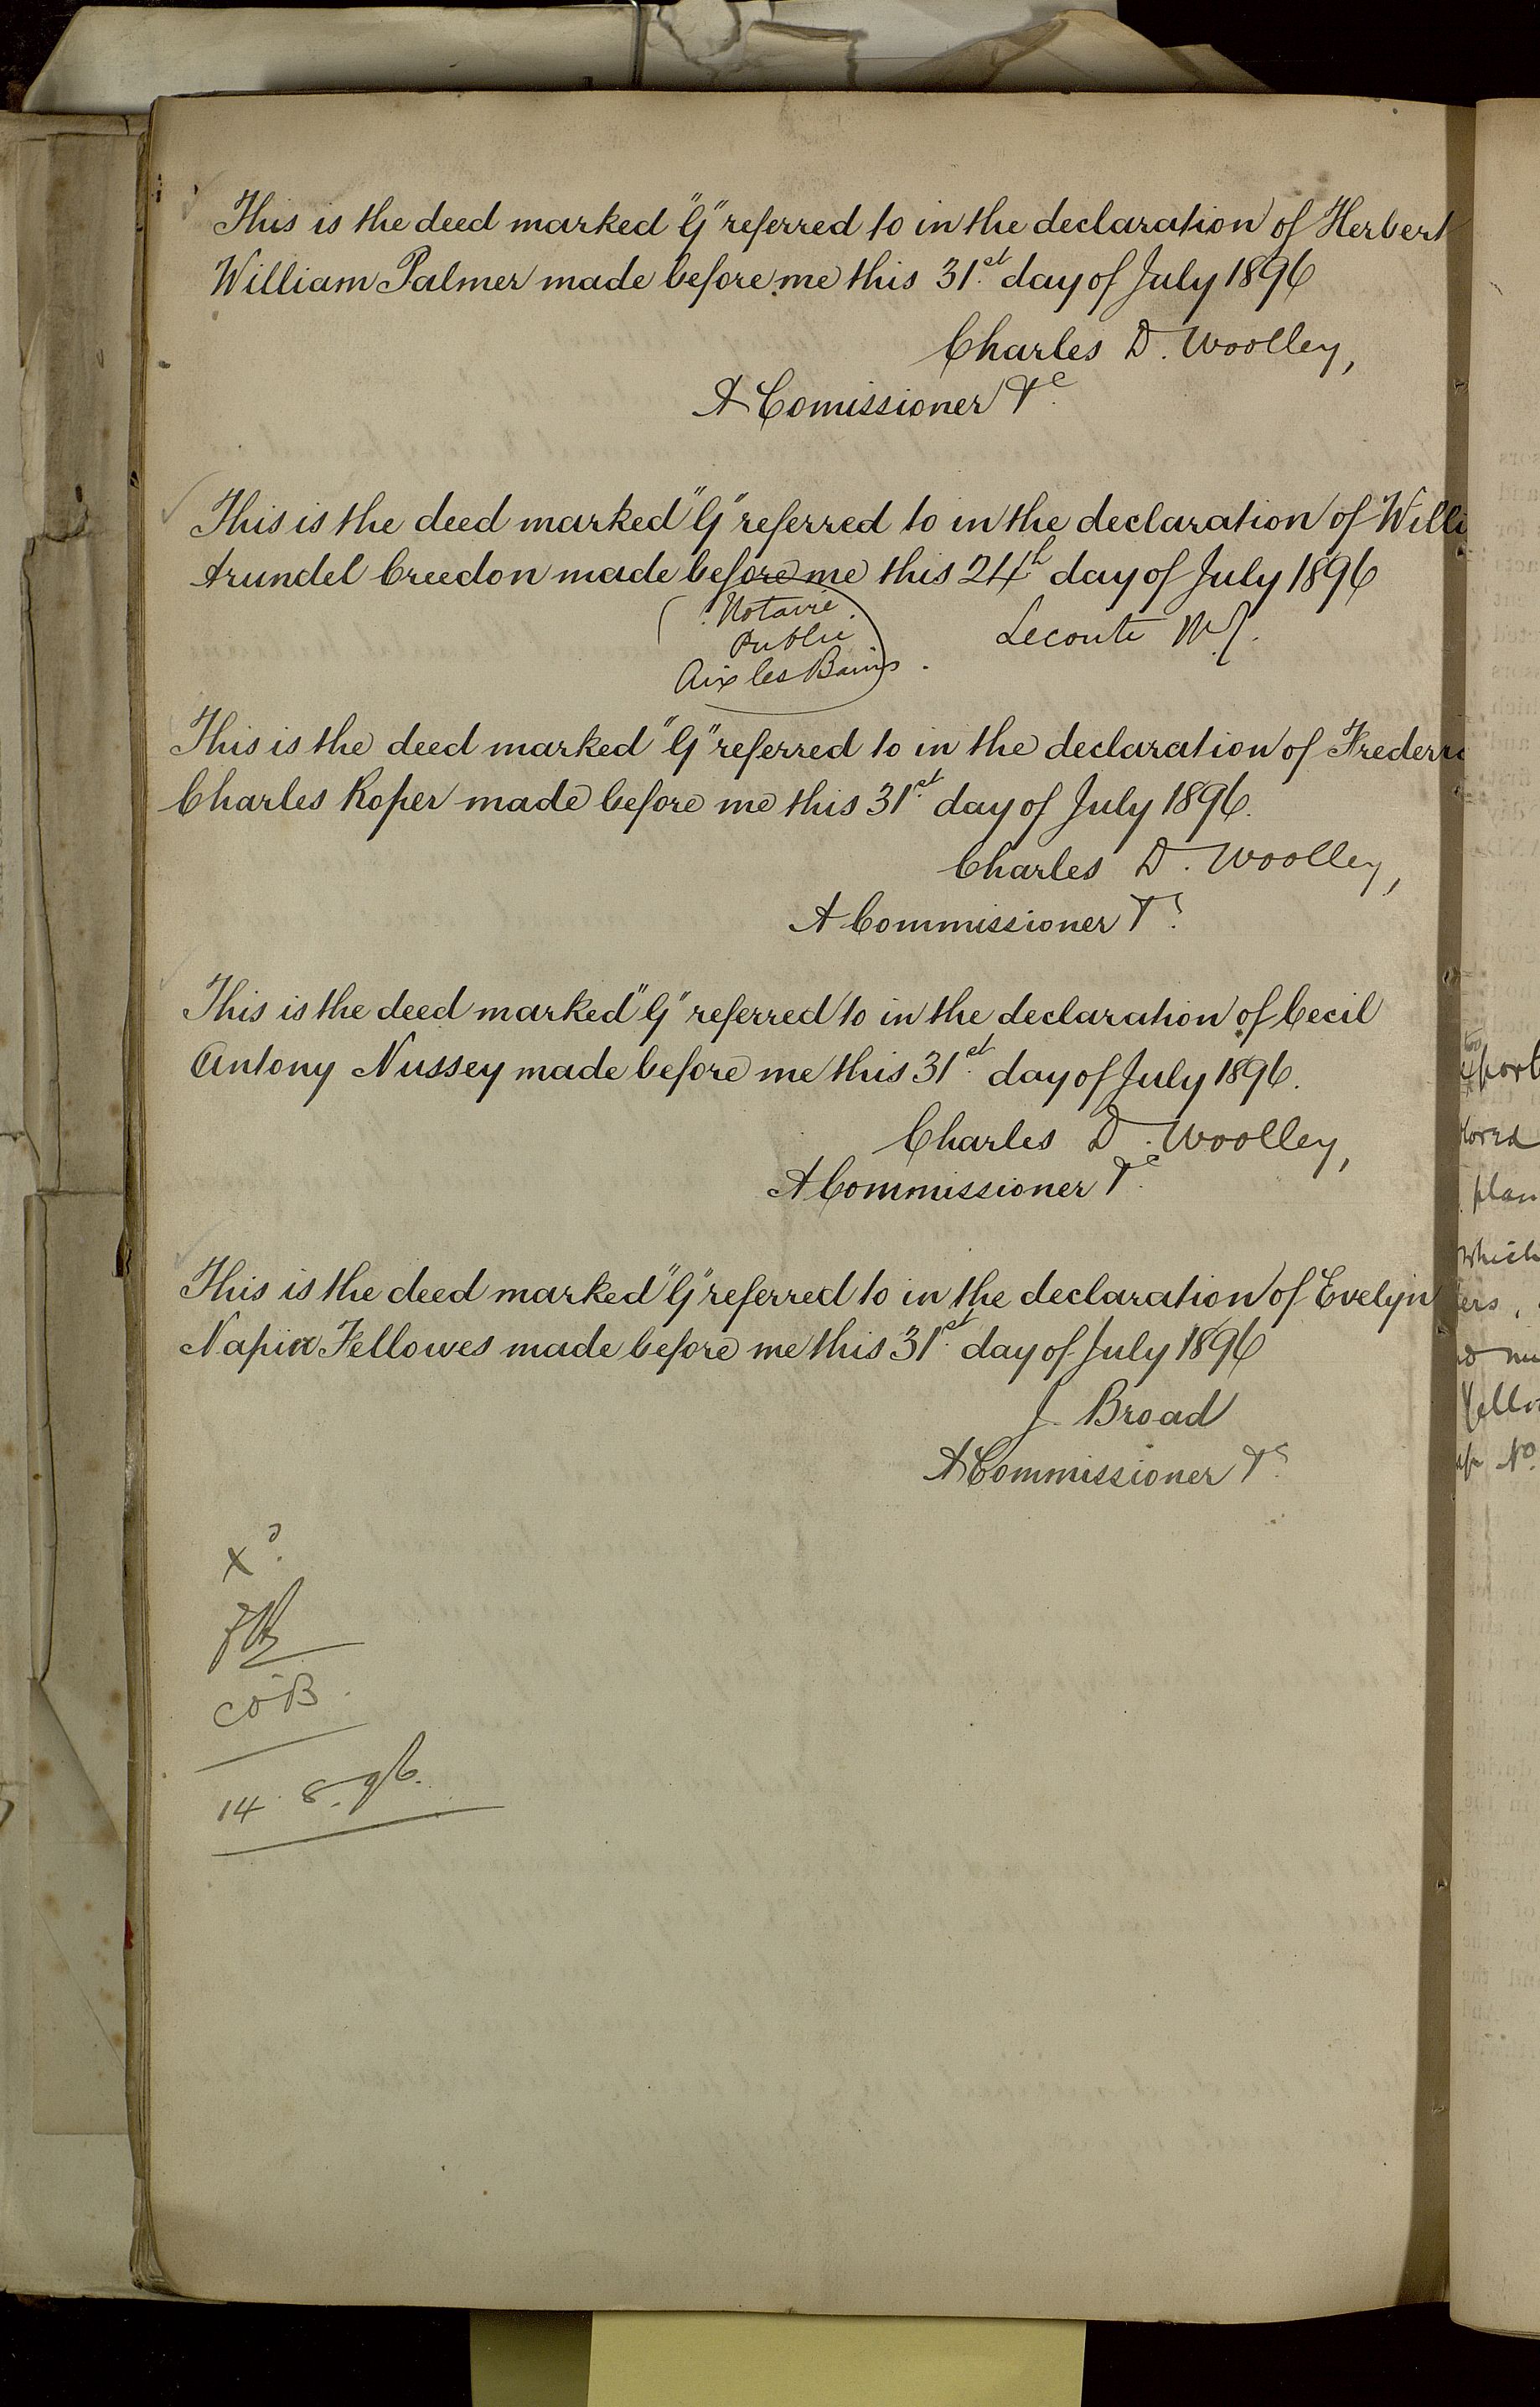 This is the deed marked "G" referred to in the declaration of Herbert
William Palmer made before me this 31st day of July 1896
Charles D. Woolley,
A Comissioner &c
This is the deed marked "G" referred to in the declaration of Willi
Arundel Creedon made before me this 24th day of July 1896
Notaire
Public
Aix les Bains
Leconte
This is the deed marked "G" referred to in the declaration of Frederic
Charles Roper made before me this 31st day of July 1896.
Charles D. Woolley,
A Commissioner &c
This is the deed marked "G" referred to in the declaration of Cecil
Antony Nussey made before me this 31st day of July 1896.
Charles D. Woolley,
A Commissioner &c
This is the deed marked "G" referred to in the declaration of Evelyn
Napier Fellowes made before me this 31st day of July 1896
J. Broad
A Commissioner &c
Xd.
COB.
14. 8. 96.
plan
which
No.